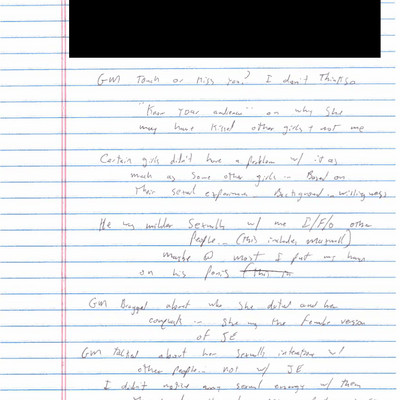 GM Touch or Kiss you? I don't Think so
"Know your audience" on why she
may have kissed other girls + not me
Certain girls didn't have a problem w/ it as
much as some other girls - Based on
Their sexual experience Background
He was milder sexually w/ me I/F/O other
People - (This includes maxwell)
maybe @ most I put my hands
on his
GM Bragged about who she dated and her
conquests - She was the Female version
of JE
GM Talked about her sexually w/
other people - not w/ JE
I didn't notice any sexual energy w/ them